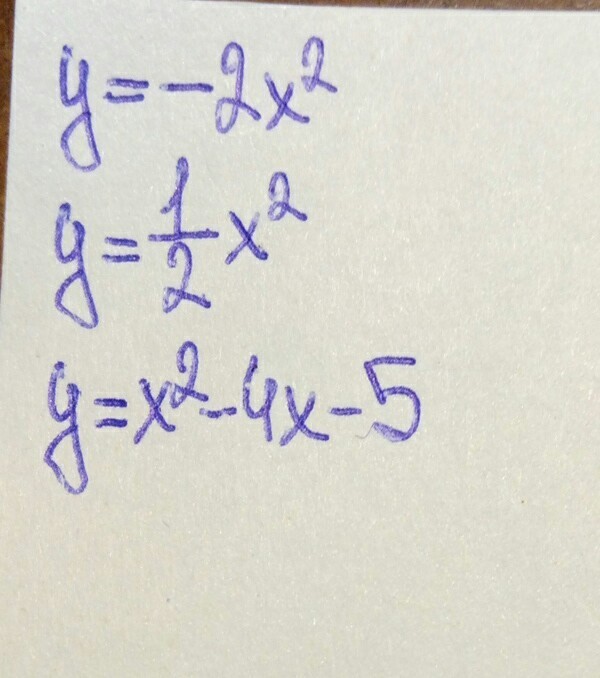 y=-2x²
y=1/2x²
y=x²-4x-5